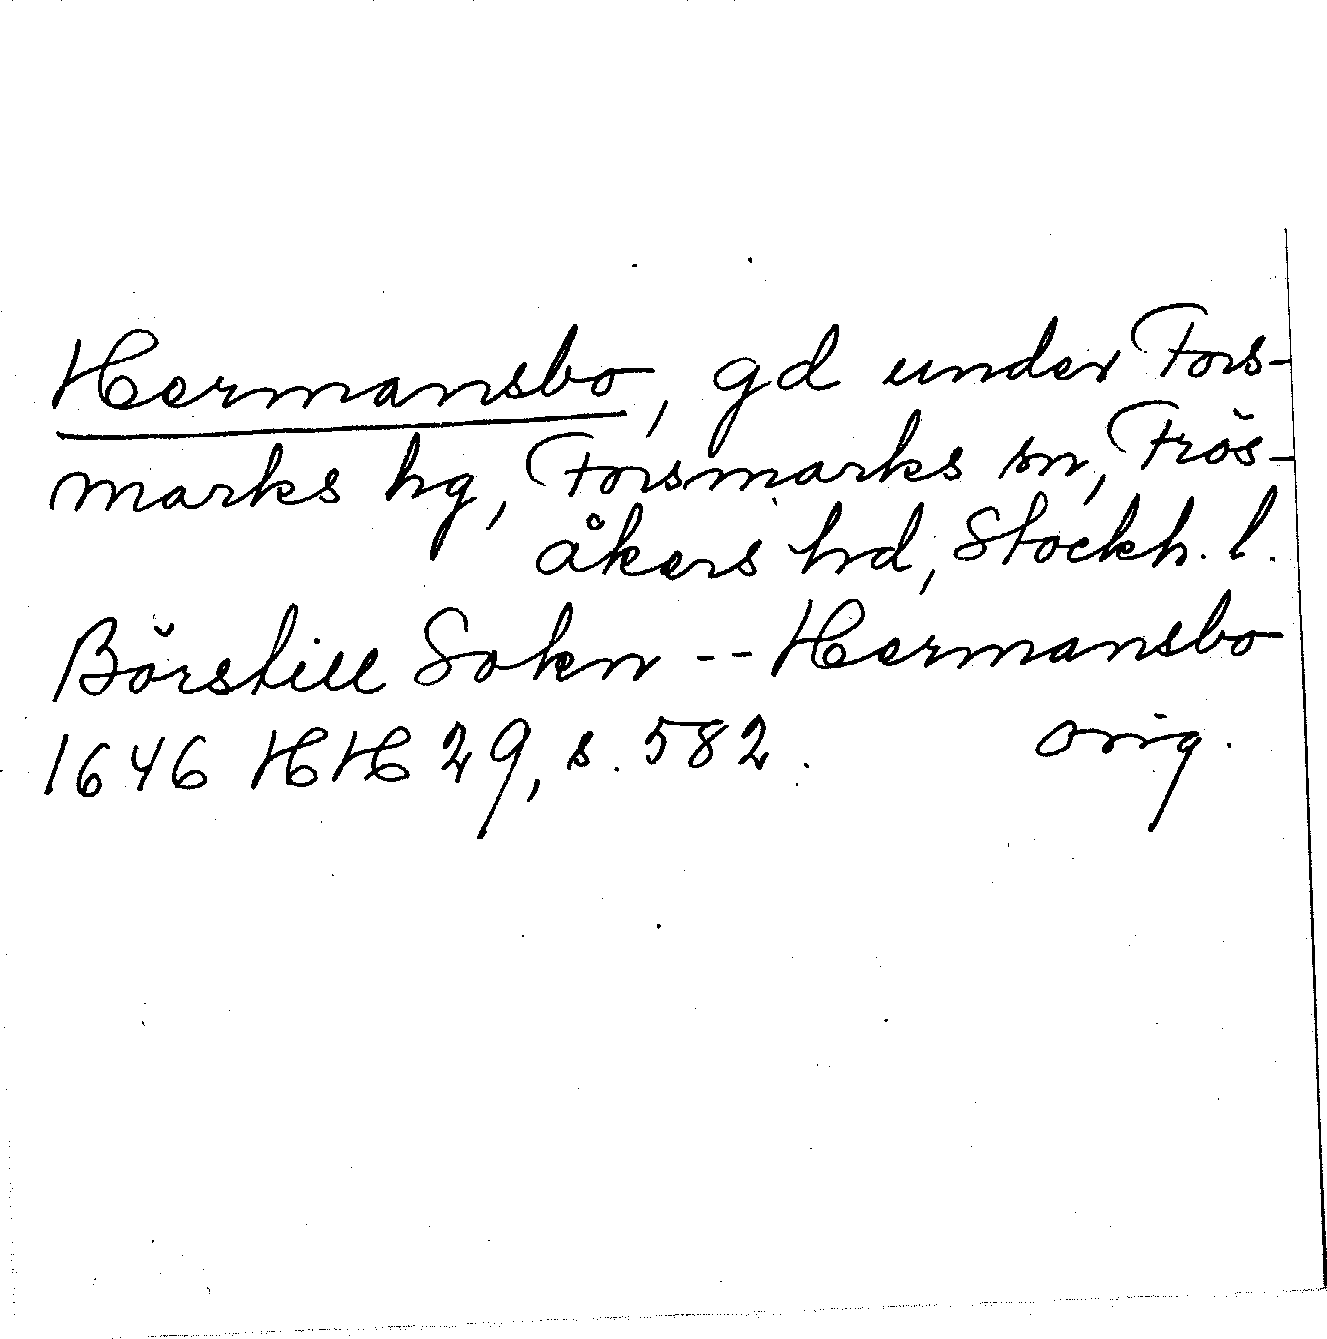 Hermansbo, gd under Fors-
marks hg, Forsmarks sn, Frös-
åkers hd, Stockh. l.
Börstill Sokn -- Hermansbo
1646 HH 29, s. 582. orig.